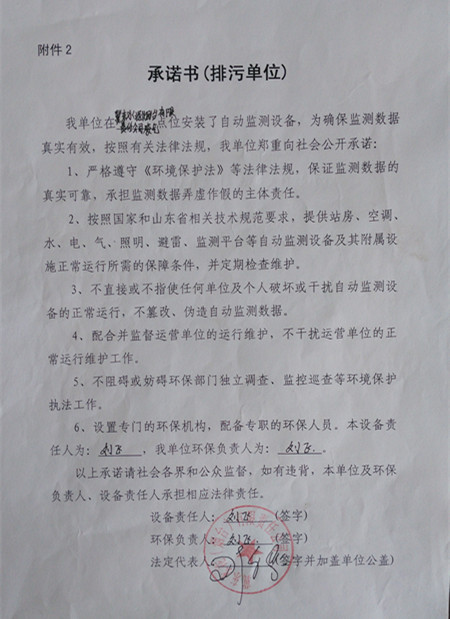 附件2
承诺书(排污单位)
我单位在 点位安装了自动监测设备，为确保监测数据
真实有效，按照有关法律法规，我单位郑重向社会公开承诺：
1、严格遵守《环境保护法》等法律法规，保证监测数据的
真实可靠，承担监测数据弄虚作假的主体责任。
2、按照国家和山东省相关技术规范要求，提供站房、空调、
水、电、气、照明、避雷、监测平台等自动监测设备及其附属设
施正常运行所需的保障条件，并定期检查维护。
3、不直接或不指使任何单位及个人破坏或干扰自动监测设
备的正常运行，不篡改、伪造自动监测数据。
4、配合并监督运营单位的运行维护，不干扰运营单位的正
常运行维护工作。
5、不阻碍或妨碍环保部门独立调查、监控巡查等环境保护
执法工作。
6、设置专门的环保机构，配备专职的环保人员。本设备责
任人为： 刘 ，我单位环保负责人为： 刘 。
以上承诺请社会各界和公众监督，如有违背，本单位及环保
负责人、设备责任人承担相应法律责任。
设备责任人：刘 (签字)
环保负责人：刘 (签字)
法定代表人 (签字并加盖单位公盖)